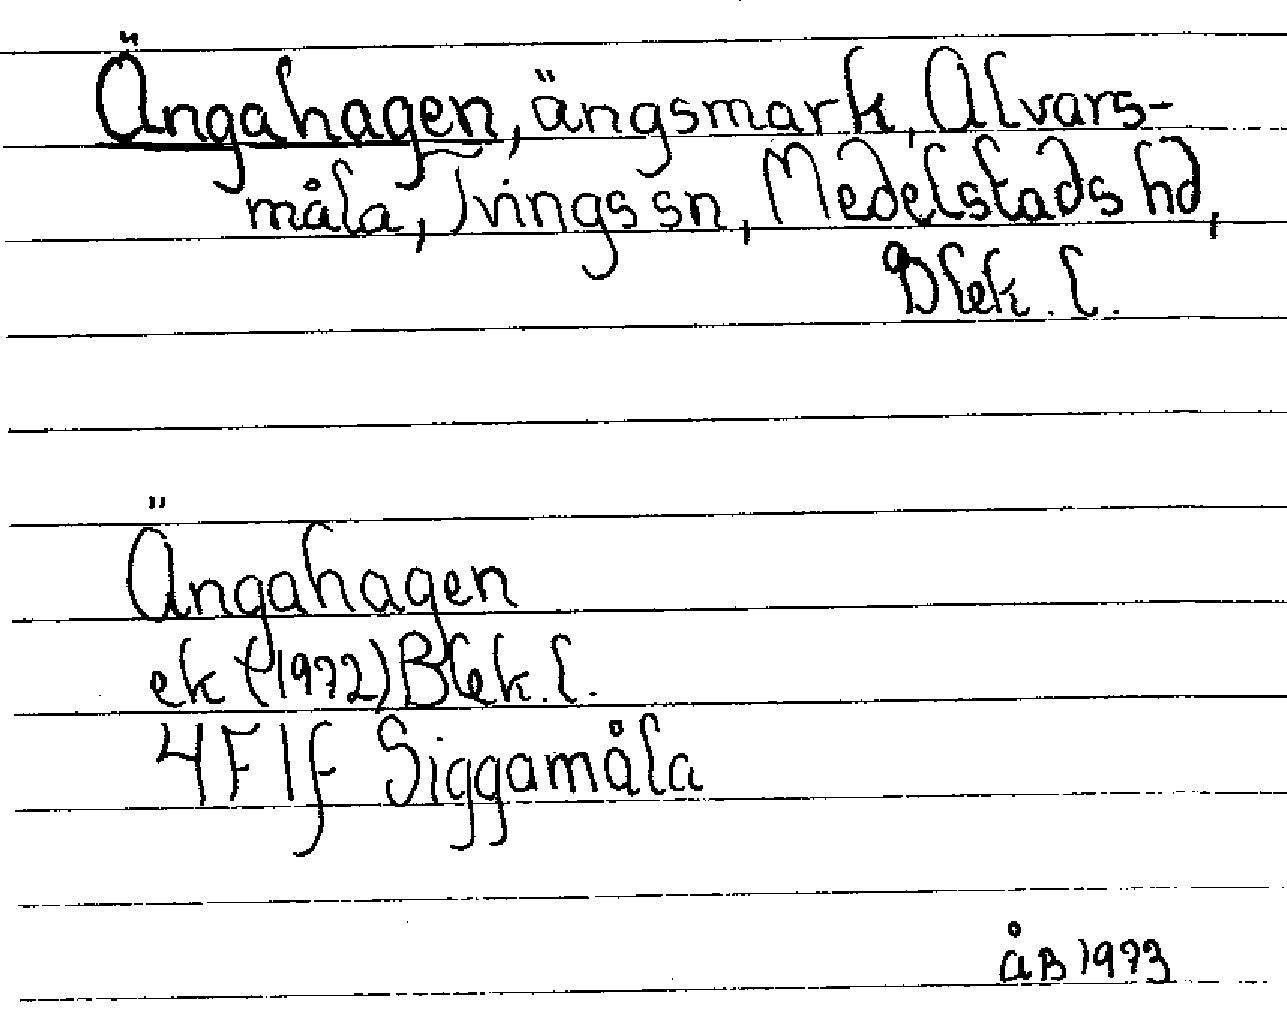 Ängahagen, ängsmark, Alvars-
måla, Tvings sn, Medelstads hd,
Blek. l.
Ängahagen
ek (1972) Blek. l.
4F1f Siggamåla
åB 1973